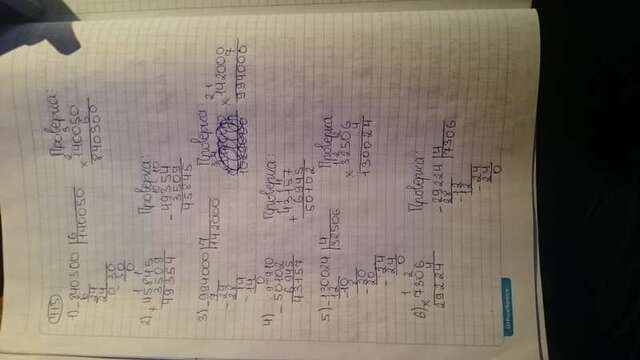 415
1) 840300 | 6
140050
6
24
24
0 30
30
0
Проверка:
2 3
× 140050
6
840300
2) + 45845
3509
49354
Проверка:
- 49354
3509
45845
3) 994000 | 7
142000
7
29
28
14
14
0
Проверка:
2 1
× 142000
7
994000
4) - 50102
6945
43157
Проверка:
+ 43157
6945
50102
5) 130024 | 4
32506
10
20
20
24
24
0
Проверка:
× 32506
4
130024
6) × 7306
4
29224
Проверка:
- 29224 | 4
7306
28
12
12
24
24
0